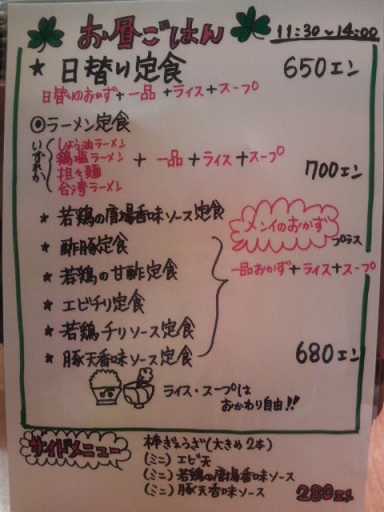 お昼ごはん 11:30~14:00
★ 日替り定食 650エン
日替りのおかず+一品+ライス+スープ
◎ラーメン定食
いずれか
しょう油ラーメン
鶏塩ラーメン
担々麺
台湾ラーメン
+ 一品 + ライス + スープ
700エン
★ 若鶏の廣場香味ソース定食
★ 酢豚定食
★ 若鶏の甘酢定食
★ エビチリ定食
★ 若鶏チリソース定食
★ 豚天香味ソース定食
メインのおかず
プラス
一品おかず+ライス+スープ
680エン
ライス・スープは
おかわり自由!!
サイドメニュー
棒ぎょうざ(大きめ2本)
(ミニ) エビ天
(ミニ) 若鶏の廣場香味ソース
(ミニ) 豚天香味ソース
280エン